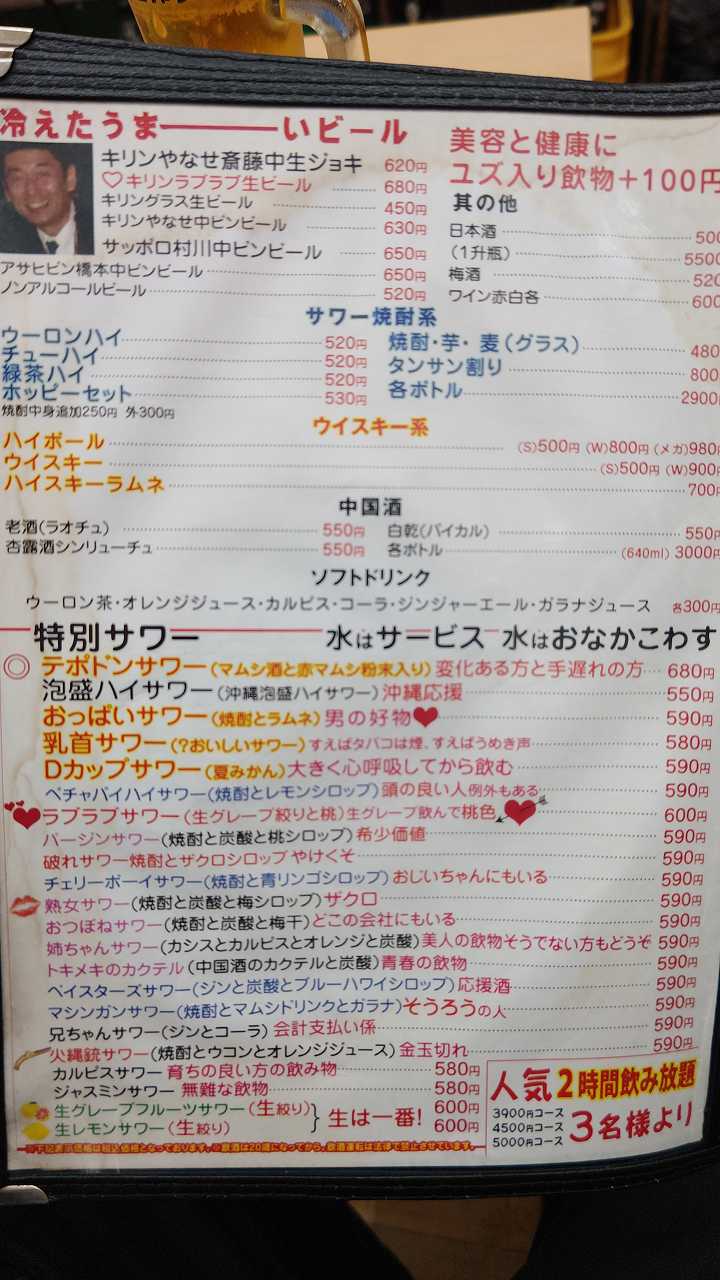 冷えたうま――――いビール
キリンやなせ斎藤中生ジョキ 620円
♡キリンラブラブ生ビール 680円
キリングラス生ビール 450円
キリンやなせ中ビンビール 630円
サッポロ村川中ビンビール 650円
アサヒビン橋本中ビンビール 650円
ノンアルコールビール 520円
美容と健康に
ユズ入り飲物+100円
其の他
日本酒 500
(1升瓶) 5500
梅酒 520
ワイン赤白各 600
サワー焼酎系
ウーロンハイ 520円
チューハイ 520円
緑茶ハイ 520円
ホッピーセット 530円
焼酎中身追加250円 外300円
焼酎・芋・麦(グラス) 480
タンサン割り 800
各ボトル 2900
ウイスキー系
ハイボール (S)500円 (W)800円 (メガ)980円
ウイスキー (S)500円 (W)900円
ハイスキーラムネ 700円
中国酒
老酒(ラオチュ) 550円
杏露酒シンリューチュ 550円
白乾(パイカル) 550円
各ボトル (640ml) 3000円
ソフトドリンク
ウーロン茶・オレンジジュース・カルピス・コーラ・ジンジャーエール・ガラナジュース 各300円
特別サワー 水はサービス 水はおなかこわす
◎テポドンサワー(マムシ酒と赤マムシ粉末入り)変化ある方と手遅れの方 680円
泡盛ハイサワー(沖縄泡盛ハイサワー)沖縄応援 550円
おっぱいサワー(焼酎とラムネ)男の好物 590円
乳首サワー(?おいしいサワー)すえばタバコは煙、すえばうめき声 580円
Dカップサワー(夏みかん)大きく心呼吸してから飲む 590円
ペチャパイハイサワー(焼酎とレモンシロップ)頭の良い人例外もある 590円
ラブラブサワー(生グレープ絞りと桃)生グレープ飲んで桃色 600円
バージンサワー(焼酎と炭酸と桃シロップ)希少価値 590円
破れサワー焼酎とザクロシロップ やけくそ 590円
チェリーボーイサワー(焼酎と青リンゴシロップ)おじいちゃんにもいる 590円
熟女サワー(焼酎と炭酸と梅シロップ)ザクロ 590円
おつぼねサワー(焼酎と炭酸と梅干)どこの会社にもいる 590円
姉ちゃんサワー(カシスとカルピスとオレンジと炭酸)美人の飲物そうでない方もどうぞ 590円
トキメキのカクテル(中国酒のカクテルと炭酸)青春の飲物 590円
ベイスターズサワー(ジンと炭酸とブルーハワイシロップ)応援酒 590円
マシンガンサワー(焼酎とマムシドリンクとガラナ)そうろうの人 590円
兄ちゃんサワー(ジンとコーラ)会計支払い係 590円
火縄銃サワー(焼酎とウコンとオレンジジュース)金玉切れ 590円
カルピスサワー 育ちの良い方の飲み物 580円
ジャスミンサワー 無難な飲物 580円
生グレープフルーツサワー(生絞り) 600円
生レモンサワー(生絞り) 600円
生は一番!
人気2時間飲み放題
3900円コース
4500円コース
5000円コース
3名様より
※下記表示価格は税込価格となっております。※飲酒は20歳になってから。飲酒運転は法律で禁止させています。